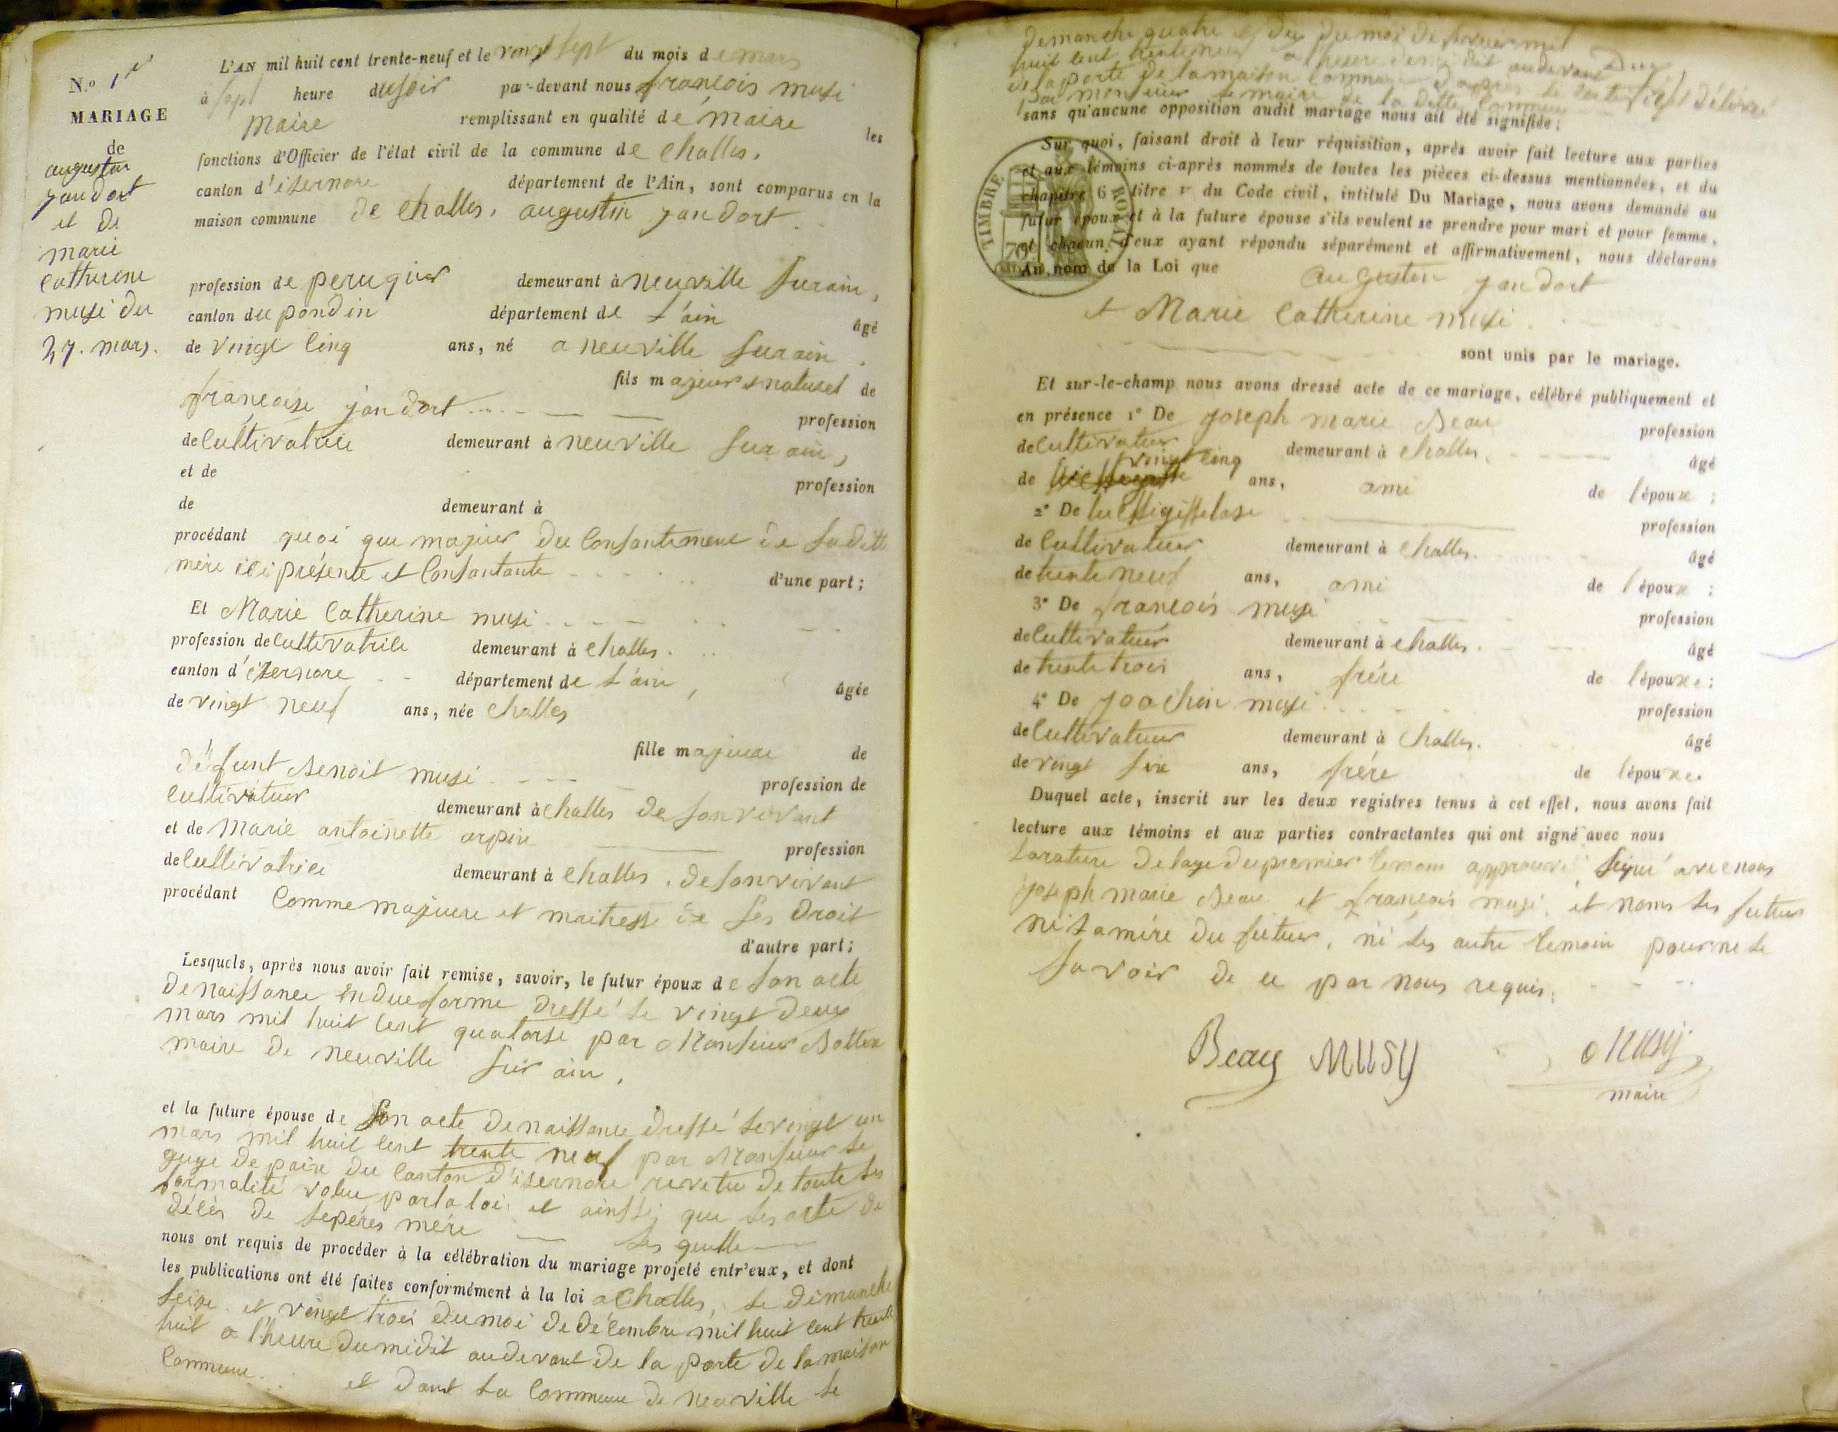 N.° 1er
MARIAGE
de
augustin
jandort
et de
marie
catherine
musi du
27. mars.
L'AN mil huit cent trente-neuf et le vingt sept du mois de mars
à sept heure du soir par-devant nous francois musi
maire remplissant en qualité de maire les
fonctions d'Officier de l'état civil de la commune de challes.
canton d'isernore département de l'Ain, sont comparus en la
maison commune de challes. augustin jandort
profession de peruquier demeurant à neuville sur ain,
canton du pondin département de l'ain âgé
de vingt cinq ans, né a neuville sur ain.
fils majeur et naturel de
francoise jandort
profession
de cultivatrice demeurant à neuville sur ain,
et de
profession
de demeurant à
procédant quoi que majeur du consantement de sa ditte
mère ici présente et consantante d'une part;
Et Marie catherine musi
profession de cultivatrice demeurant à challes.
canton d'isernore département de l'ain, âgée
de vingt neuf ans, née challes
fille majeure de
défunt Benoit musi profession de
cultivateur demeurant à challes de son vivant
et de marie antoinette arpin profession
de cultivatrice demeurant à challes. de son vivant
procédant comme majeure et maitresse de ses droit
d'autre part;
Lesquels, après nous avoir fait remise, savoir, le futur époux de son acte
de naissance en due forme dressé le vingt deux
mars mil huit cent quatorse par Monsieur Bottex
maire de neuville sur ain,
et la future épouse de son acte de naissance dressé le vingt un
mars mil huit cent trente neuf par Monsieur le
guge de paix du canton d'isernore revetu de toute les
formalité volue par la loi et ainssi que les acte de
décès de sepéres mére les quelle
nous ont requis de procéder à la célébration du mariage projeté entr'eux, et dont
les publications ont été faites conformément à la loi a challes, le dimanche
seize et vingt trois du moi de décembre mil huit cent trente
huit a l'heure du midit au devant de la porte de la maison
commune. et dant la commune de neuville le
demanche quatre et dix du moi de fevrier mil
huit cent trente neuf a l'heure de midit au devant
de la porte de la maison commune d'apres le certificat délivré
par monsieur le maire de la ditte commune
sans qu'aucune opposition audit mariage nous ait été signifiée;
Sur quoi, faisant droit à leur réquisition, après avoir fait lecture aux parties
et aux témoins ci-après nommés de toutes les pièces ci-dessus mentionnées, et du
chapitre 6 titre v du Code civil, intitulé Du Mariage, nous avons demandé au
futur époux et à la future épouse s'ils veulent se prendre pour mari et pour femme,
et chacun d'eux ayant répondu séparément et affirmativement, nous déclarons
Au nom de la Loi que augustin jandort
TIMBRE ROYAL
et Marie catherine musi
sont unis par le mariage.
Et sur-le-champ nous avons dressé acte de ce mariage, célébré publiquement et
en présence 1° De joseph marie Beau profession
de cultivateur demeurant à challes. âgé
de vingt cinq ans, ami de l'époux;
2° De luc profession
de cultivateur demeurant à challes. âgé
de trente neuf ans, ami de l'époux;
3° De francois musi profession
de cultivateur demeurant à challes. âgé
de trente trois ans, frére de l'épouxe;
4° De joachin musi profession
de cultivateur demeurant à challes. âgé
de vingt six ans, frére de l'épouxe.
Duquel acte, inscrit sur les deux registres tenus à cet effet, nous avons fait
lecture aux témoins et aux parties contractantes qui ont signé avec nous
la rature de lage du premier temoin approuvé signé avec nous
joseph marie Beau et francois musi. et nom les futurs
ni la mére du futur, ni les autre temoin pour ne le
savoir de ce par nous requis.
Beau MUSY Musy
maire